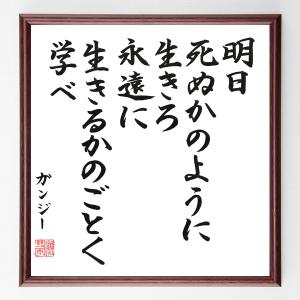 明日
死ぬかのように
生きろ
永遠に
生きるかのごとく
学べ
ガンジー